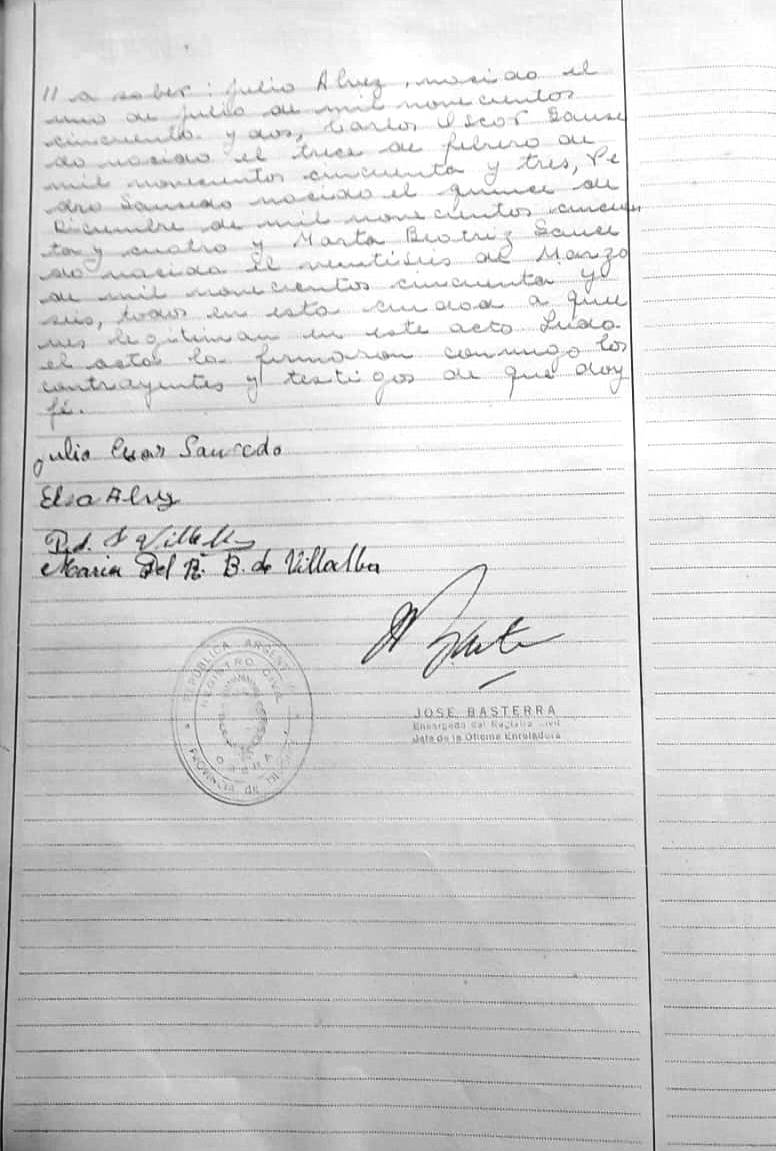 // a saber: Julio Alvez, nacido el
uno de julio de mil novecientos
cincuenta y dos, Carlos Oscar Sauce
do nacido el trece de febrero de
mil novecientos cincuenta y tres, Pe
dro Saucedo nacido el quince de
Diciembre de mil novecientos cincuen
ta y cuatro y Marta Beatriz Sauce
do nacida el veintiseis de Marzo
de mil novecientos cincuenta y
seis, todos en esta ciudad a quie
nes legitiman en este acto. Leida
el acta la firmaron conmigo los
contrayentes y testigos de que doy
fé.
Julio Cesar Saucedo
Elsa Alvez
Maria Del R. B. de Villalba
REPUBLICA ARGENT
REGISTRO CIVIL
OBERA
PROVINCIA DE
JOSE BASTERRA
Encargado del Registro Civil
Jefe de la Oficina Enroladora